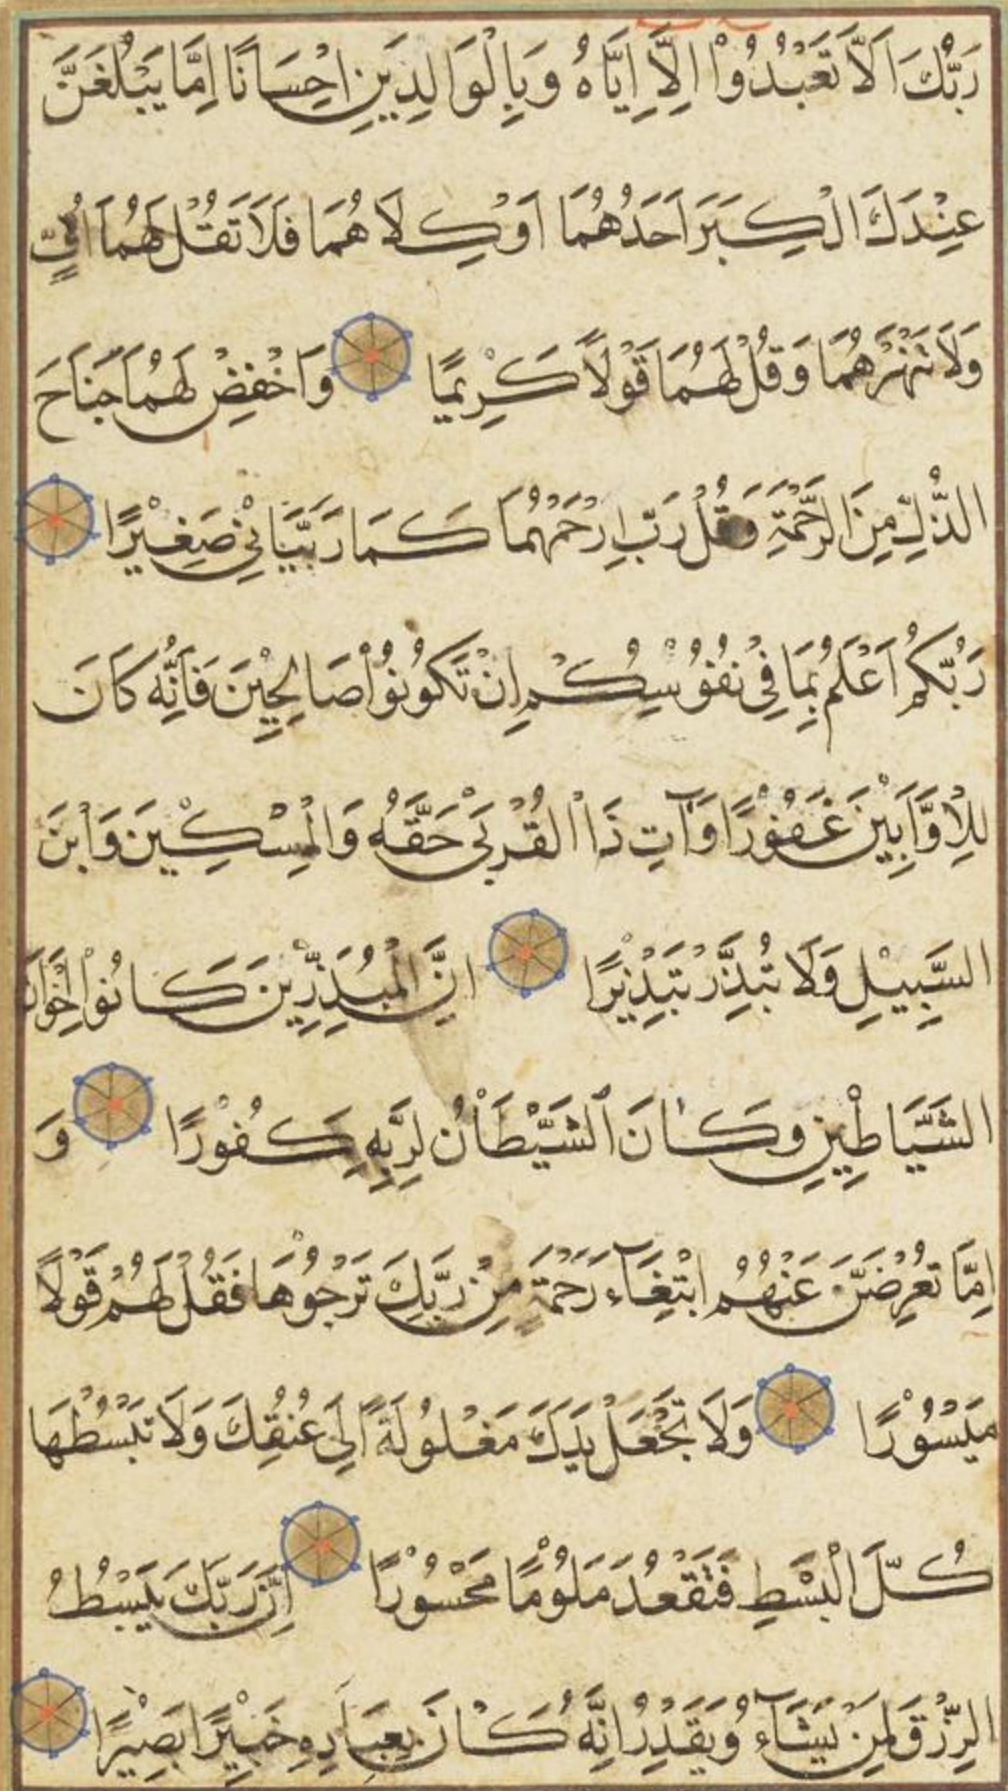 رَبُّكَ اَلَّا تَعْبُدُوْا اِلَّا اِيَّاهُ وَبِالْوَالِدَيْنِ اِحْسَانًا اِمَّا يَبْلُغَنَّ
عِنْدَكَ الْكِبَرَ اَحَدُهُمَا اَوْ كِلَاهُمَا فَلَا تَقُلْ لَهُمَا اُفٍّ
وَلَا تَنْهَرْهُمَا وَقُلْ لَهُمَا قَوْلًا كَرِيْمًا وَاخْفِضْ لَهُمَا جَنَاحَ
الذُّلِّ مِنَ الرَّحْمَةِ وَقُلْ رَبِّ ارْحَمْهُمَا كَمَا رَبَّيَانِيْ صَغِيْرًا
رَبُّكُمْ اَعْلَمُ بِمَا فِيْ نُفُوْسِكُمْ اِنْ تَكُوْنُوْا صَالِحِيْنَ فَاِنَّهُ كَانَ
لِلْاَوَّابِيْنَ غَفُوْرًا وَآتِ ذَا الْقُرْبٰى حَقَّهُ وَالْمِسْكِيْنَ وَابْنَ
السَّبِيْلِ وَلَا تُبَذِّرْ تَبْذِيْرًا اِنَّ الْمُبَذِّرِيْنَ كَانُوْا اِخْوَانَ
الشَّيَاطِيْنِ وَكَانَ الشَّيْطَانُ لِرَبِّهِ كَفُوْرًا وَ
اِمَّا تُعْرِضَنَّ عَنْهُمُ ابْتِغَآءَ رَحْمَةٍ مِنْ رَبِّكَ تَرْجُوْهَا فَقُلْ لَهُمْ قَوْلًا
مَيْسُوْرًا وَلَا تَجْعَلْ يَدَكَ مَغْلُوْلَةً اِلٰى عُنُقِكَ وَلَا تَبْسُطْهَا
كُلَّ الْبَسْطِ فَتَقْعُدَ مَلُوْمًا مَحْسُوْرًا اِنَّ رَبَّكَ يَبْسُطُ
الرِّزْقَ لِمَنْ يَشَآءُ وَيَقْدِرُ اِنَّهُ كَانَ بِعِبَادِهِ خَبِيْرًا بَصِيْرًا